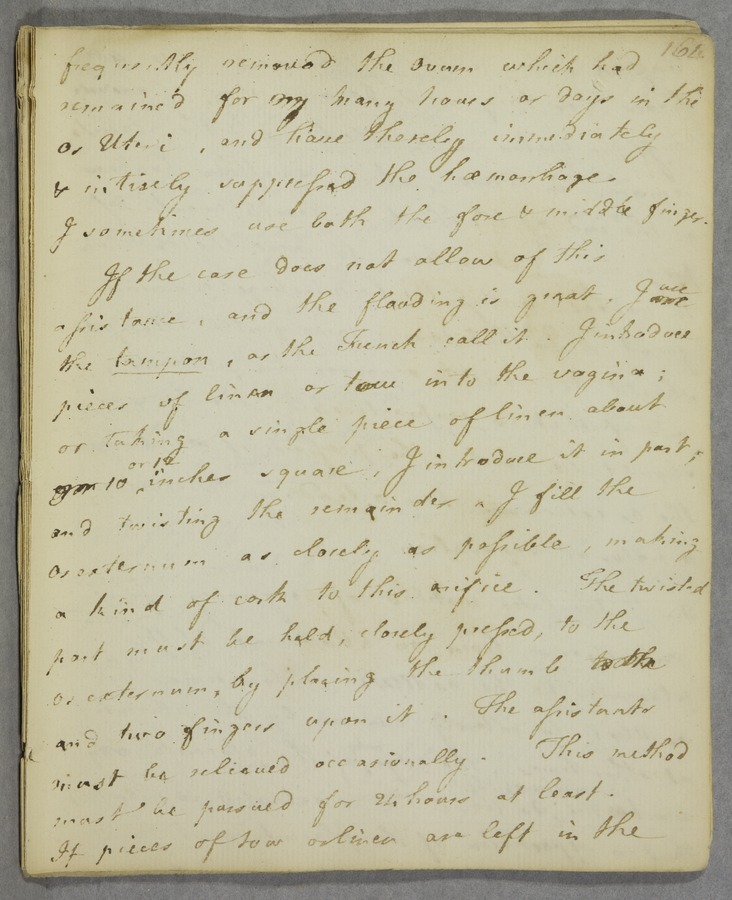 164
frequently removed the ovum which had
remained for many hours or days in the
os Uteri, and have thereby immediately
& intirely suppressed the hæmorrhage.
I sometimes use both the fore & middle finger.
If the case does not allow of this
assistance, and the flooding is great. I use
the tampon, as the French call it. I introduce
pieces of linen or tow into the vagina;
or taking a single piece of linen about
10 or 12 inches square, I introduce it in part,
and twisting the remainder, I fill the
os externum as closely as possible, making
a kind of cork to this orifice. The twisted
part must be held, closely pressed, to the
os externum, by placing the thumb to the
and two fingers upon it. The assistants
must be relieved occasionally. This method
must be pursued for 24 hours at least.
If pieces of tow or linen are left in the